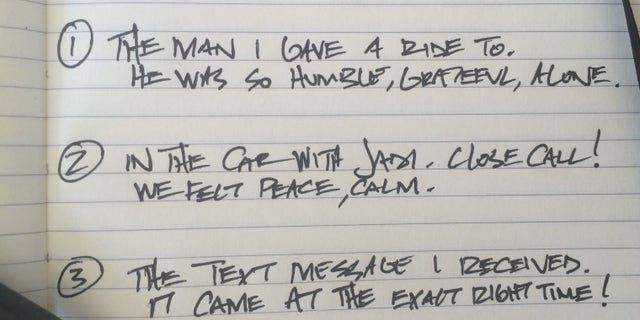 ① THE MAN I GAVE A RIDE TO.
HE WAS SO HUMBLE, GRATEFUL, ALONE.
② IN THE CAR WITH . CLOSE CALL!
WE FELT PEACE, CALM.
③ THE TEXT MESSAGE I RECEIVED.
IT CAME AT THE EXACT RIGHT TIME!